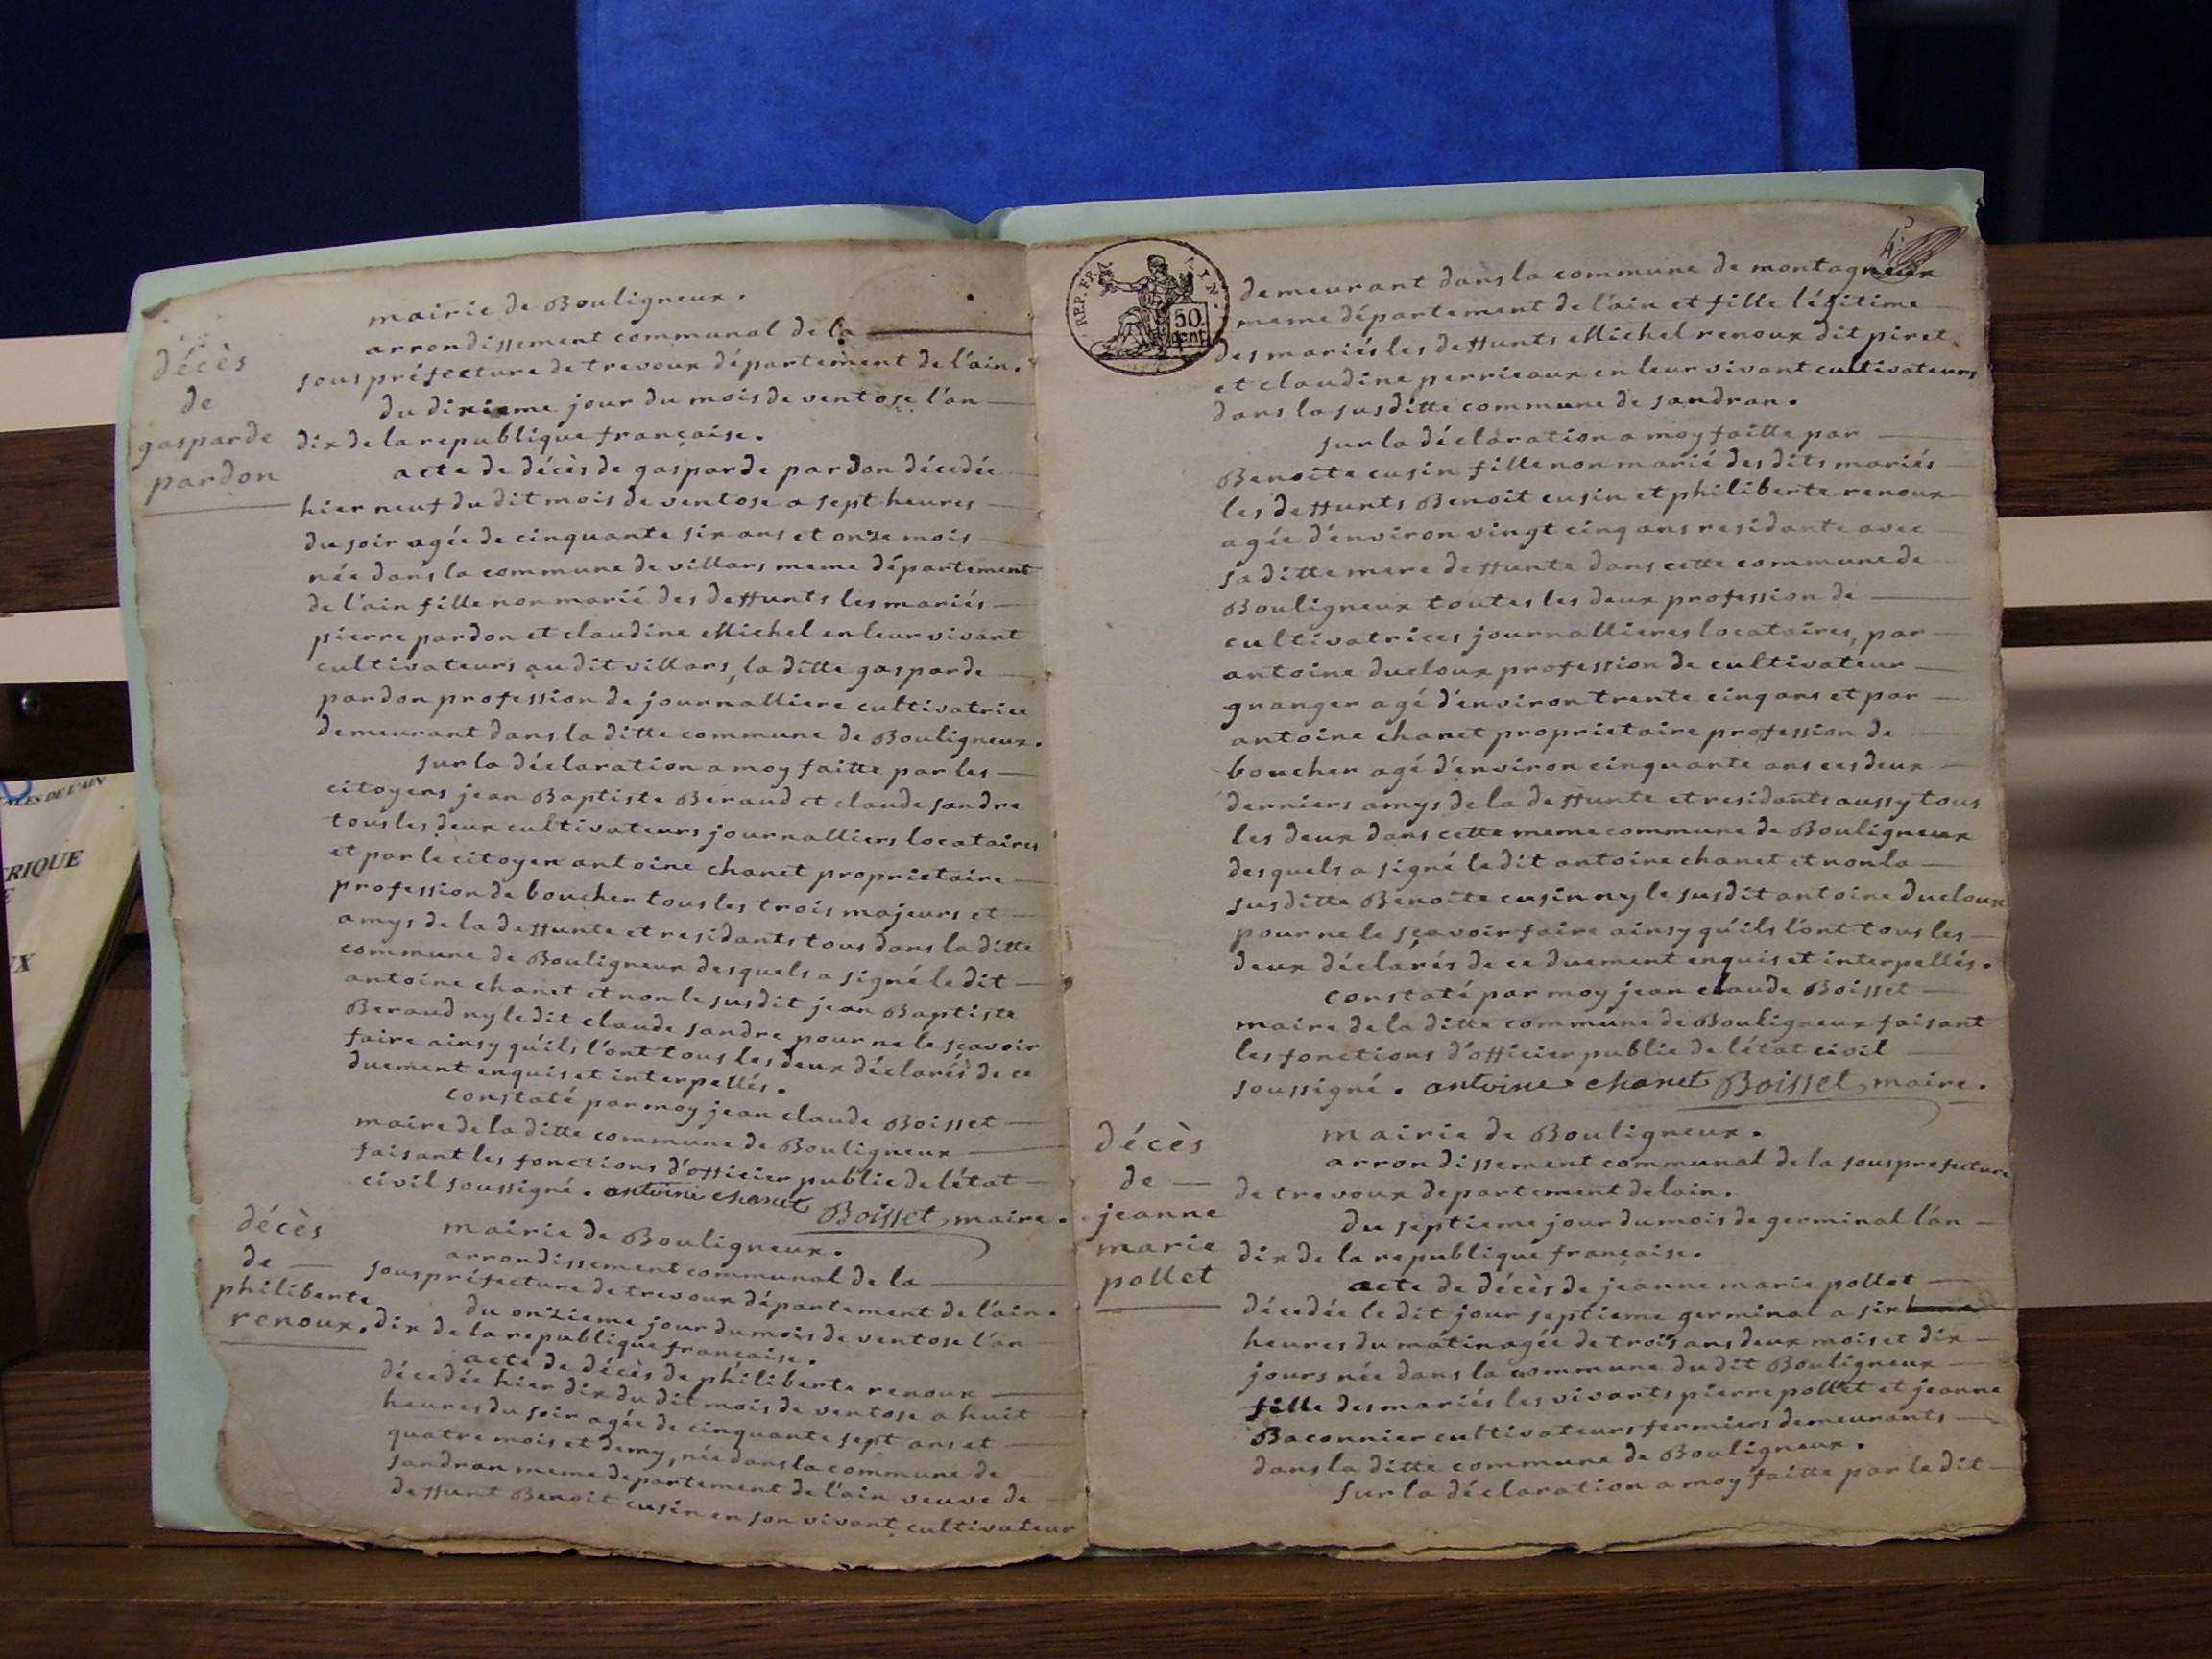 mairie de Bouligneux.
arrondissement communal de la
sous préfecture de trevoux département de l'ain.
du dixieme jour du mois de ventose l'an
dix de la republique française.
décès
de
gasparde
pardon
acte de décès de gasparde pardon décedée
hier neuf du dit mois de ventose a sept heures
du soir agée de cinquante six ans et onze mois
née dans la commune de villars meme département
de l'ain fille non marié des deffunts les mariés
pierre pardon et claudine Michel en leur vivant
cultivateurs au dit villars, la ditte gasparde
pardon profession de journalliere cultivatrice
demeurant dans la ditte commune de Bouligneux.
sur la déclaration a moy faitte par les
citoyens jean Baptiste Beraud et claude sandre
tous les deux cultivateurs journalliers locataires
et par le citoyen antoine chanet proprietaire
profession de boucher tous les trois majeurs et
amys de la deffunte et residants tous dans la ditte
commune de Bouligneux desquels a signé le dit
antoine chanet et non le susdit jean Baptiste
Beraud ny le dit claude sandre pour ne le sçavoir
faire ainsy qu'ils l'ont tous les deux déclarés de ce
duement enquis et interpellés.
constaté par moy jean claude Boisset
maire de la ditte commune de Bouligneux
faisant les fonctions d'officier public de l'état
civil soussigné. antoine chanet
Boisset, maire.
décès
de
philiberte
renoux.
mairie de Bouligneux.
arrondissement communal de la
sous préfecture de trevoux département de l'ain.
du onzieme jour du mois de ventose l'an
dix de la republique française.
acte de décès de philiberte renoux
décedée hier dix du dit mois de ventose a huit
heures du soir agée de cinquante sept ans et
quatre mois et demy, née dans la commune de
sandran meme departement de l'ain veuve de
deffunt Benoit cusin en son vivant cultivateur
REP. FRA
IN.
50.
cent
demeurant dans la commune de montagneux
meme département de l'ain et fille légitime
des mariés les deffunts Michel renoux dit piret
et claudine perrieaux en leur vivant cultivateurs
dans la susditte commune de sandran.
sur la déclaration a moy faitte par
Benoite cusin fille non marié des dits mariés
les deffunts Benoit cusin et philiberte renoux
agée d'environ vingt cinq ans residante avec
sa ditte mere deffunte dans cette commune de
Bouligneux toutes les deux profession de
cultivatrices journallieres locataires, par
antoine ducloux profession de cultivateur
granger agé d'environ trente cinq ans et par
antoine chanet proprietaire profession de
boucher agé d'environ cinquante ans ces deux
derniers amys de la deffunte et residants aussy tous
les deux dans cette meme commune de Bouligneux
desquels a signé le dit antoine chanet et non la
susditte Benoite cusin ny le susdit antoine ducloux
pour ne le sçavoir faire ainsy qu'ils l'ont tous les
deux déclarés de ce duement enquis et interpellés.
constaté par moy jean claude Boisset
maire de la ditte commune de Bouligneux faisant
les fonctions d'officier public de l'état civil
soussigné. antoine chanet Boisset, maire.
décès
de
jeanne
marie
pollet
mairie de Bouligneux.
arrondissement communal de la sous prefecture
de trevoux departement de lain.
du septieme jour du mois de germinal l'an
dix de la republique française.
acte de décès de jeanne marie pollet
décedée le dit jour septieme germinal a six
heures du matin agée de trois ans deux mois et dix
jours née dans la commune du dit Bouligneux
fille des mariés les vivants pierre pollet et jeanne
Baconnier cultivateurs fermiers demeurants
dans la ditte commune de Bouligneux.
sur la déclaration a moy faitte par le dit
LES DE L'AIN
RIQUE